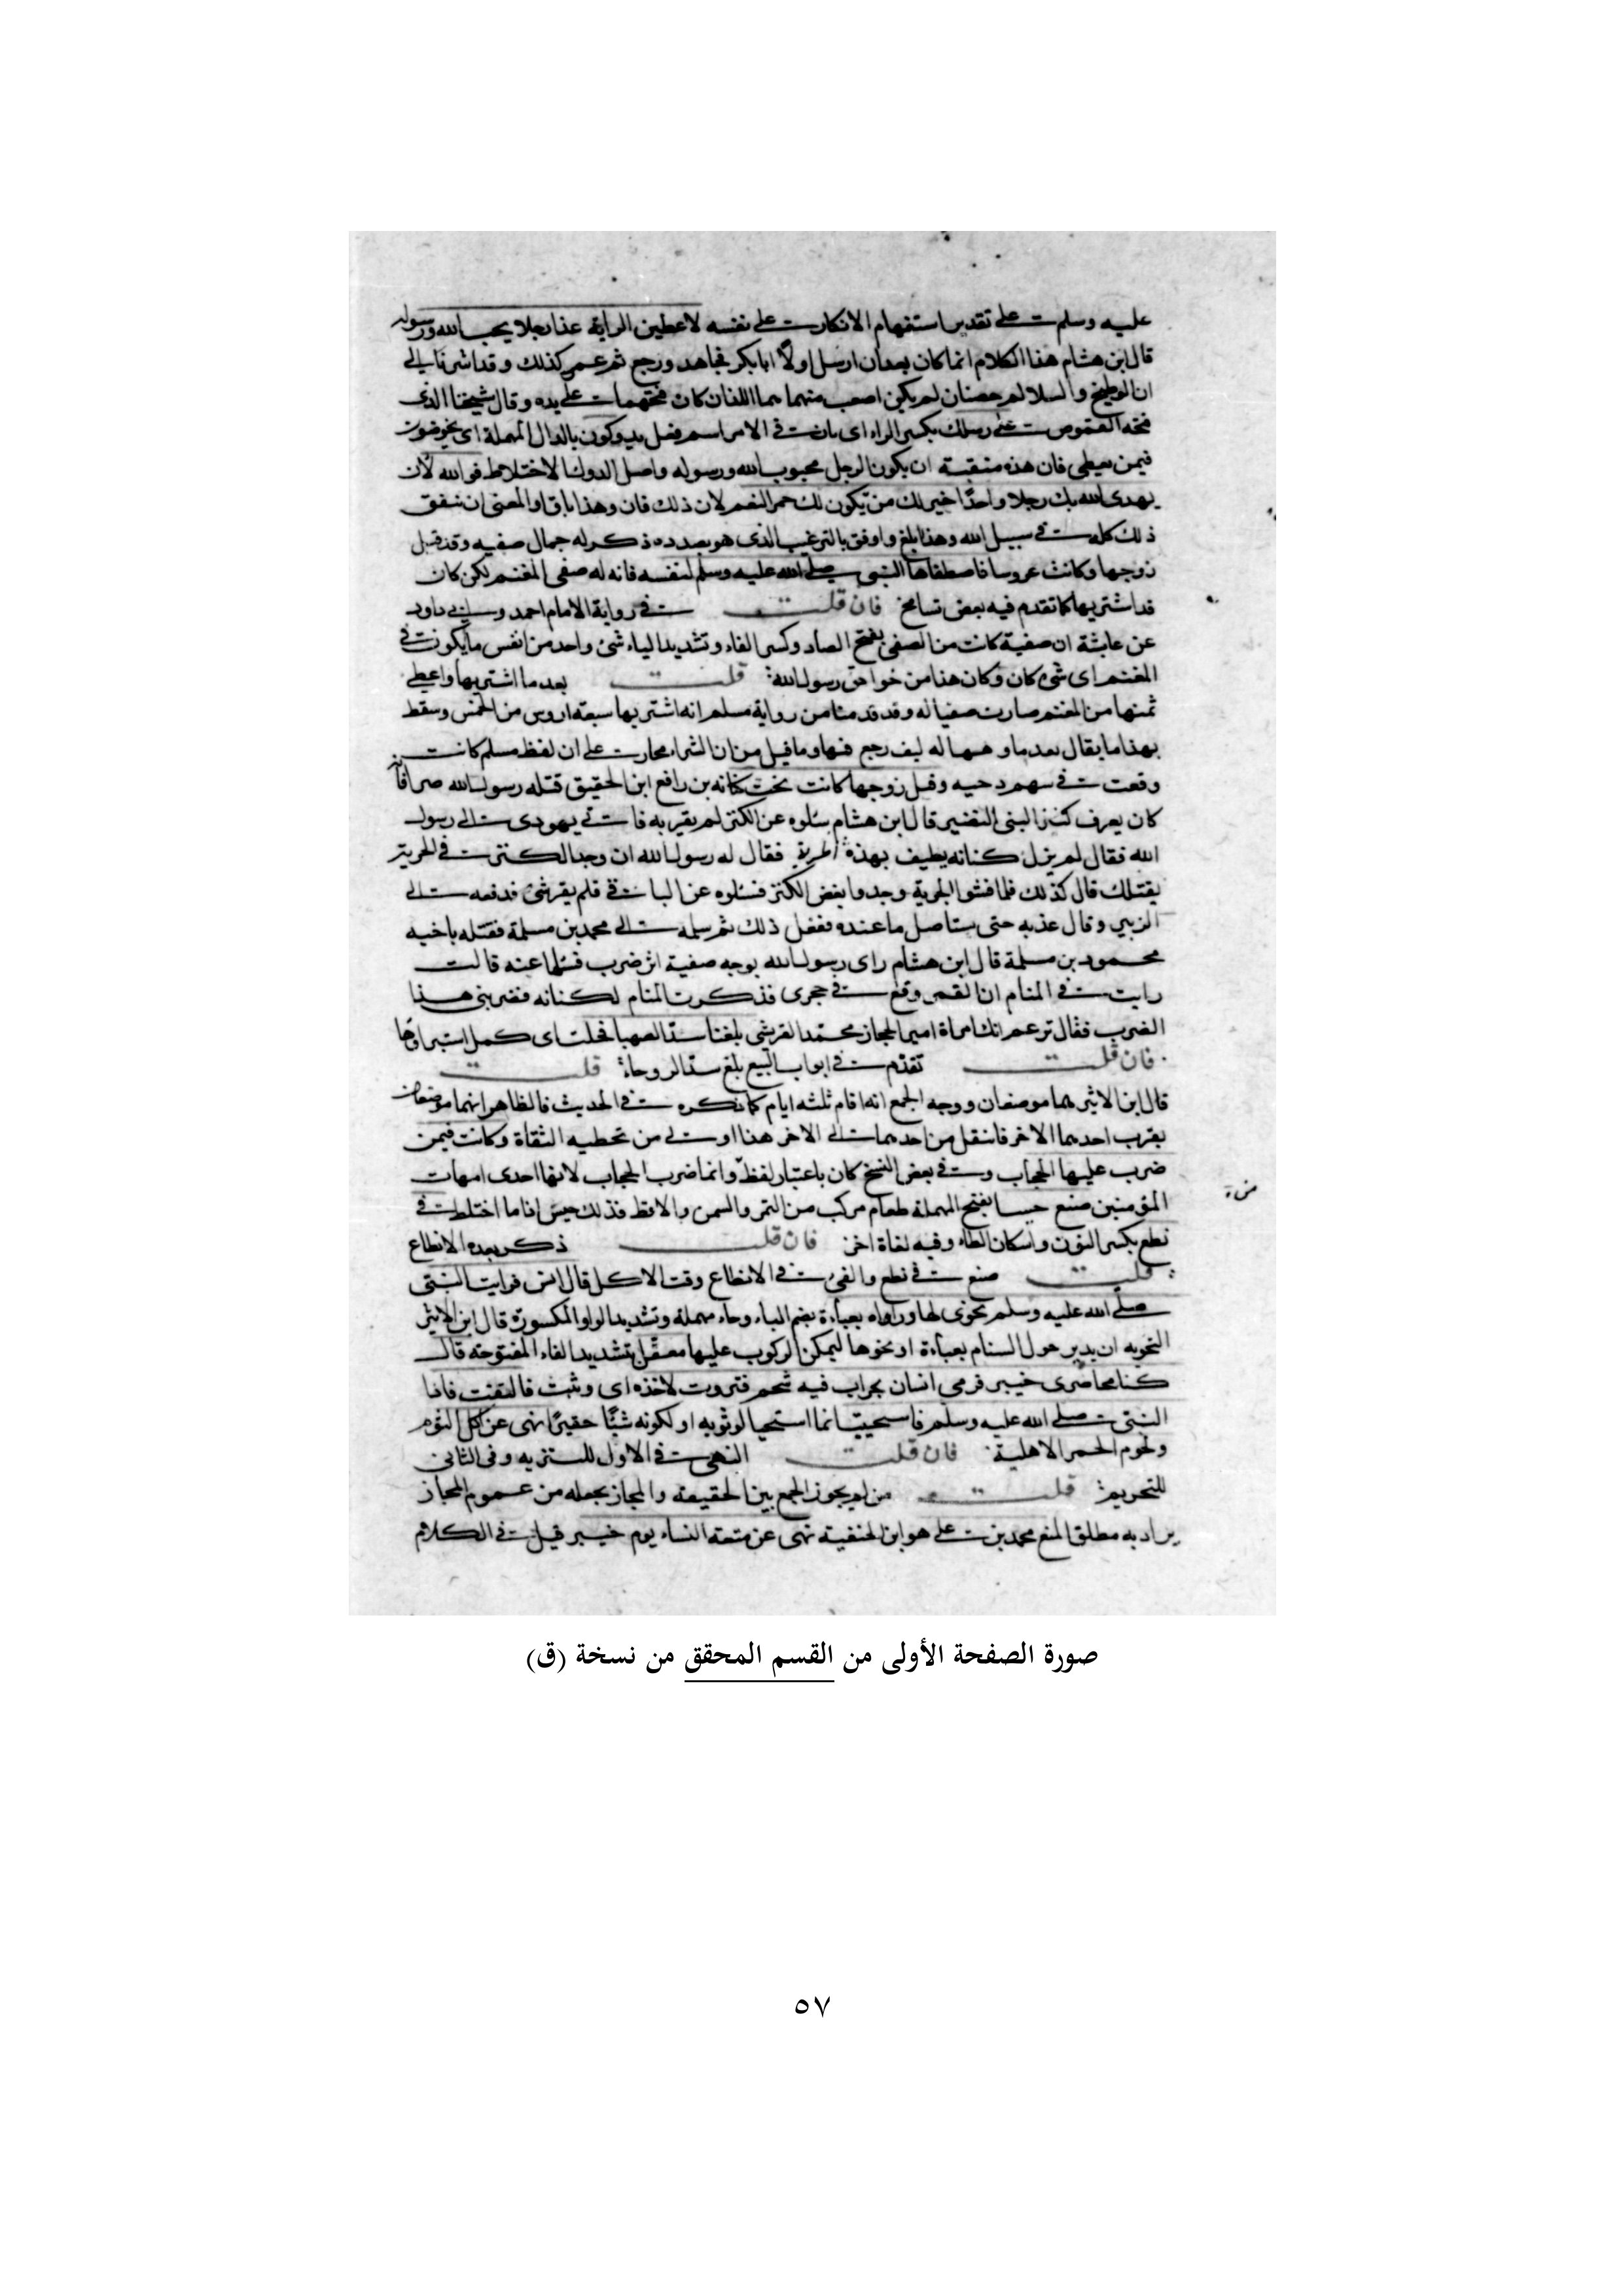 عليه وسلم على تقدير استفهام الانكار على نفسه لاعطين الراية غدا رجلا يحب الله ورسوله
قال ابن هشام هذا الكلام انما كان بعد ان ارسل اولاً ابا بكر فجاهد ورجع ثم عمر كذلك وقد اشرنا الى
ان الوطيح والسلالم حصنان لم يكن اصعب منهما هما اللذان كان فتحهما على يده وقال شيخنا الذى
فتحه القموص على رسلك بكسر الراء اى تان فى الامر اسم فعل يدوكون بالدال المهملة اى يخوضون
فيمن يعطى فان هذه منقبة ان يكون الرجل محبوب الله ورسوله واصل الدوك الاختلاط فوالله لأن
يهدى الله بك رجلا واحدًا خير لك من تكون لك حمر النعم لان ذلك فان وهذا باق او المعنى ان تنفق
ذلك كله فى سبيل الله وهذا ابلغ واوفق بالترغيب الذى هو بصدده ذكر له جمال صفيه وقد قتل
زوجها وكانت عروسا فاصطفاها النبى صلى الله عليه وسلم لنفسه فانه له صفى المغنم لكن كان
قد اشتريها كما تقدم فيه بعض تسامح فان قلت فى رواية الامام احمد و داود
عن عايشة ان صفية كانت من الصفى بفتح الصاد وكسر الفاء وتشديد الياء شئ واحد من انفس ما يكون فى
المغنم اى شئ كان وكان هذا من خواص رسول الله قلت بعد ما اشتريها واعطى
ثمنها من المغنم صارت صفيا له وقد قدمنا من رواية مسلم انه اشتريها سبعة اروس من الخمس وسقط
بهذا ما يقال بعد ما وهبها له كيف رجع فيها وما قيل من ان الشراء مجاز على ان لفظ مسلم كانت
وقعت فى سهم دحيه وقيل زوجها كانت تحت كنانه بن رافع ابن الحقيق قتله رسول الله صبرا فانه
كان يعرف كنز البنى النضير قال ابن هشام سئلوه عن الكنز لم يقر به فاتى يهودى الى رسول
الله فقال لم يزل كنانه يطيف بهذه الخربة فقال له رسول الله ان وجد الكنز فى الخربة
يقتلك قال كذلك فلما فتشوا الخربة وجدوا بعض الكنز فسئلوه عن الباقى فلم يقر شئ فدفعه الى
الزبير وقال عذبه حتى يستاصل ما عنده ففعل ذلك ثم سلمه الى محمد بن مسلمة فقتله باخيه
محمود بن مسلمة قال ابن هشام راى رسول الله بوجه صفية اثر ضرب فسئلها عنه قالت
رايت فى المنام ان القمر وقع فى حجرى فذكرت المنام لكنانه فضربنى هذا
الضرب فقال تزعم انك امراة امير الحجاز محمد القرشى بلغنا سد الصهبا فحلت اى كمل استبراؤها
فان قلت تقدم فى ابواب البيع بلغ سد الروحاء قلت
قال ابن الاثير هما موضعان ووجه الجمع انه اقام ثلثه ايام كما ذكره فى الحديث فالظاهر انهما موضعان
بقرب احدهما الاخر فانتقل من احدهما الى الاخر هذا اولى من تخطيه الثقاة وكانت فيمن
ضرب عليها الحجاب وفى بعض النسخ كان باعتبار لفظ وانما ضرب الحجاب لانها احدى امهات
المؤمنين صنع حيسا بفتح المهملة طعام مركب من التمر والسمن والاقط فذلك حيس اذا ما اختلط فى
نطع بكسر النون واسكان الطاء وفيه لغاة اخر فان قلت ذكر بعده الانطاع
قلت صنع فى نطع والقى فى الانطاع وقت الاكل قال انس فرايت النبى
صلى الله عليه وسلم يحوى لها وراءه بعباءة بضم الياء وحاء مهملة وتشديد الواو المكسورة قال ابن الاثير
التحويه ان يدير حول السنام بعباءة او نحوها ليمكن الركوب عليها مغفل بتشديد الفاء المفتوحة قال
كنا محاصرى خيبر فرمى انسان بجراب فيه شحم فنزوت لاخذه اى وثبت فالتفت فاذا
النبى صلى الله عليه وسلم فاستحييت انما استحيا لوثوبه او لكونه شيًا حقيرًا نهى عن اكل الثوم
ولحوم الحمر الاهلية فان قلت النهى فى الاول للتنزيه وفى الثانى
للتحريم قلت من لم يجوز الجمع بين الحقيقة والمجاز يجعله من عموم المجاز
يراد به مطلق المنع محمد بن على هو ابن الحنفية نهى عن متعة النساء يوم خيبر قيل فى الكلام
صورة الصفحة الأولى من القسم المحقق من نسخة (ق)
٥٧